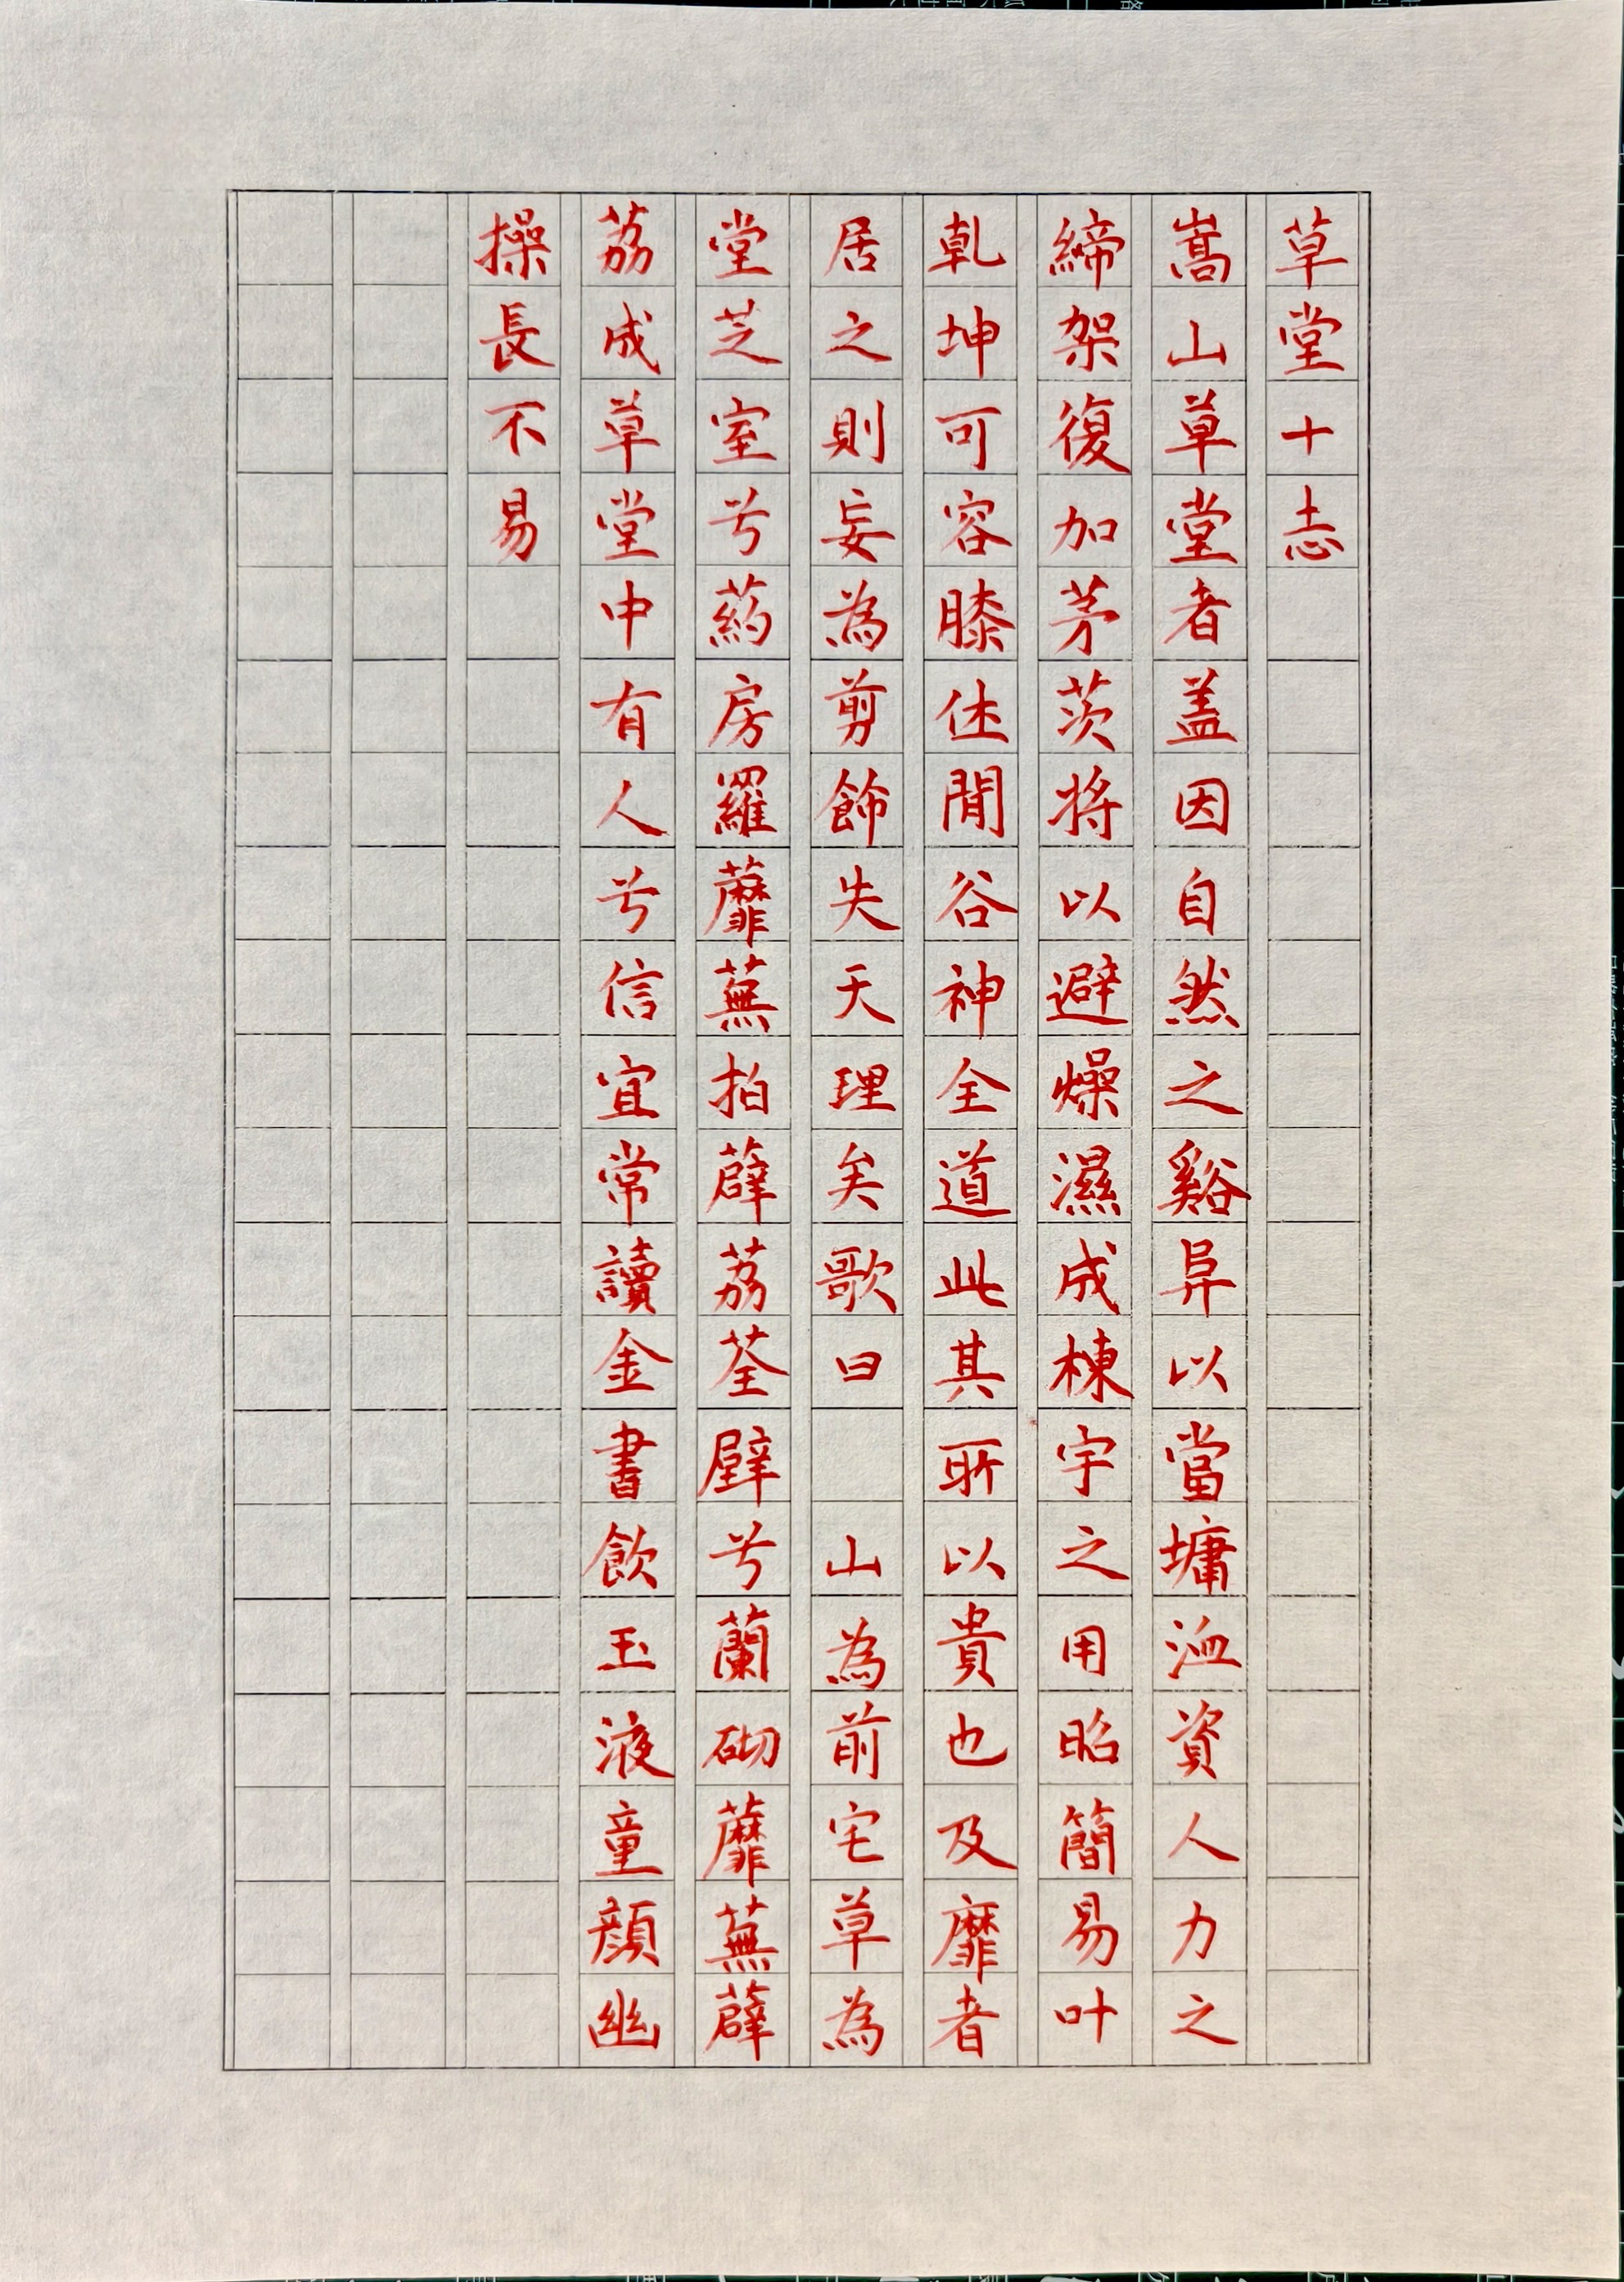 草堂十志
嵩山草堂者盖因自然之谿阜以當墉洫資人力之
締架復加茅茨將以避燥濕成棟宇之用昭簡易叶
乾坤可容膝休閒谷神全道此其所以貴也及靡者
居之則妄為剪飾失天理矣歌曰　山為前宅草為
堂芝室兮葯房羅蘼蕪拍薜荔荃辟兮蘭砌蘼蕪薜
荔成草堂中有人兮信宜常讀金書飲玉液童顏幽
操長不易